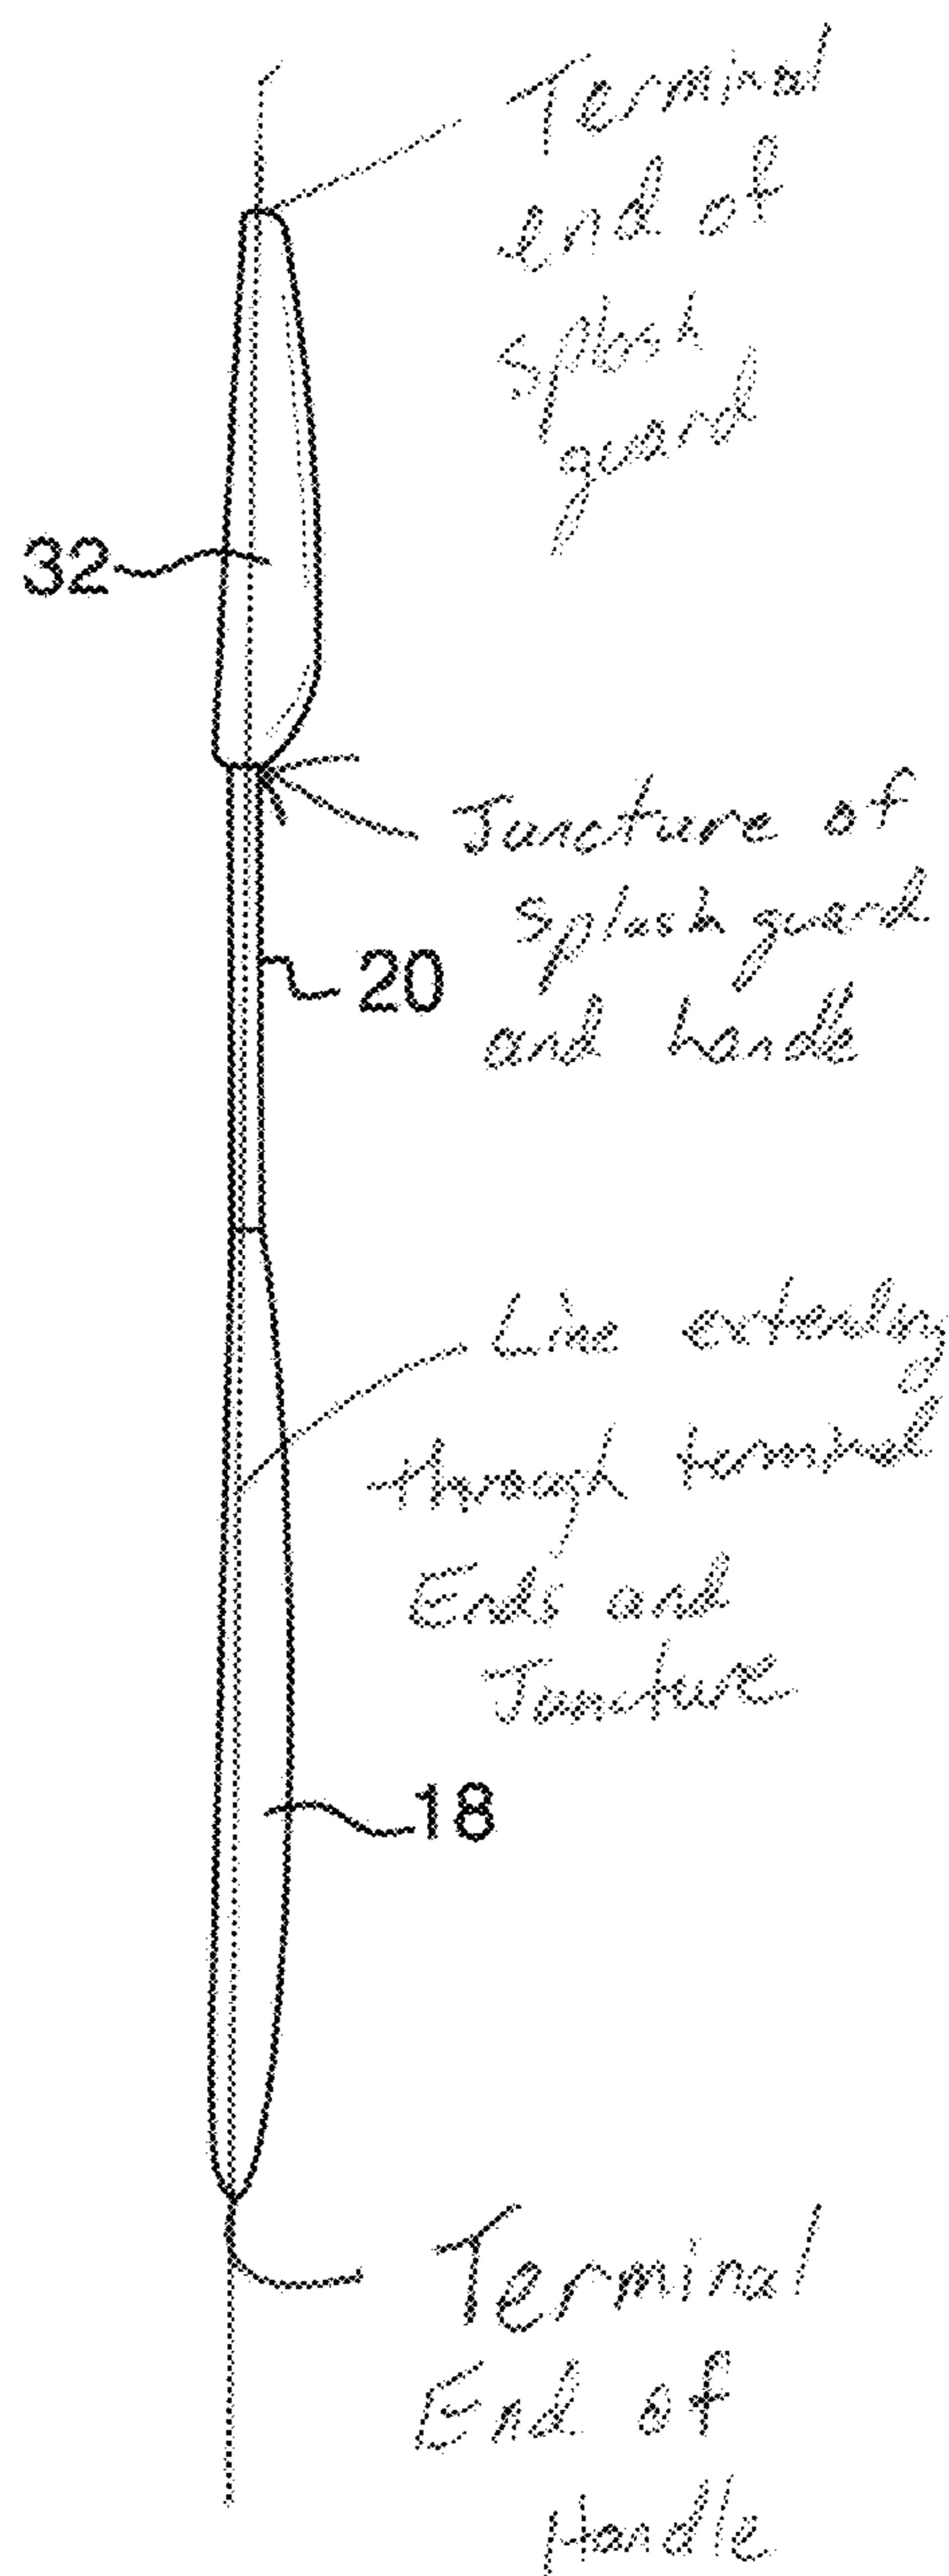 Terminal
end of
splash
guard
32
Juncture of
splash guard
20
and handle
Line extending
through terminal
Ends and
Juncture
18
Terminal
End of
Handle